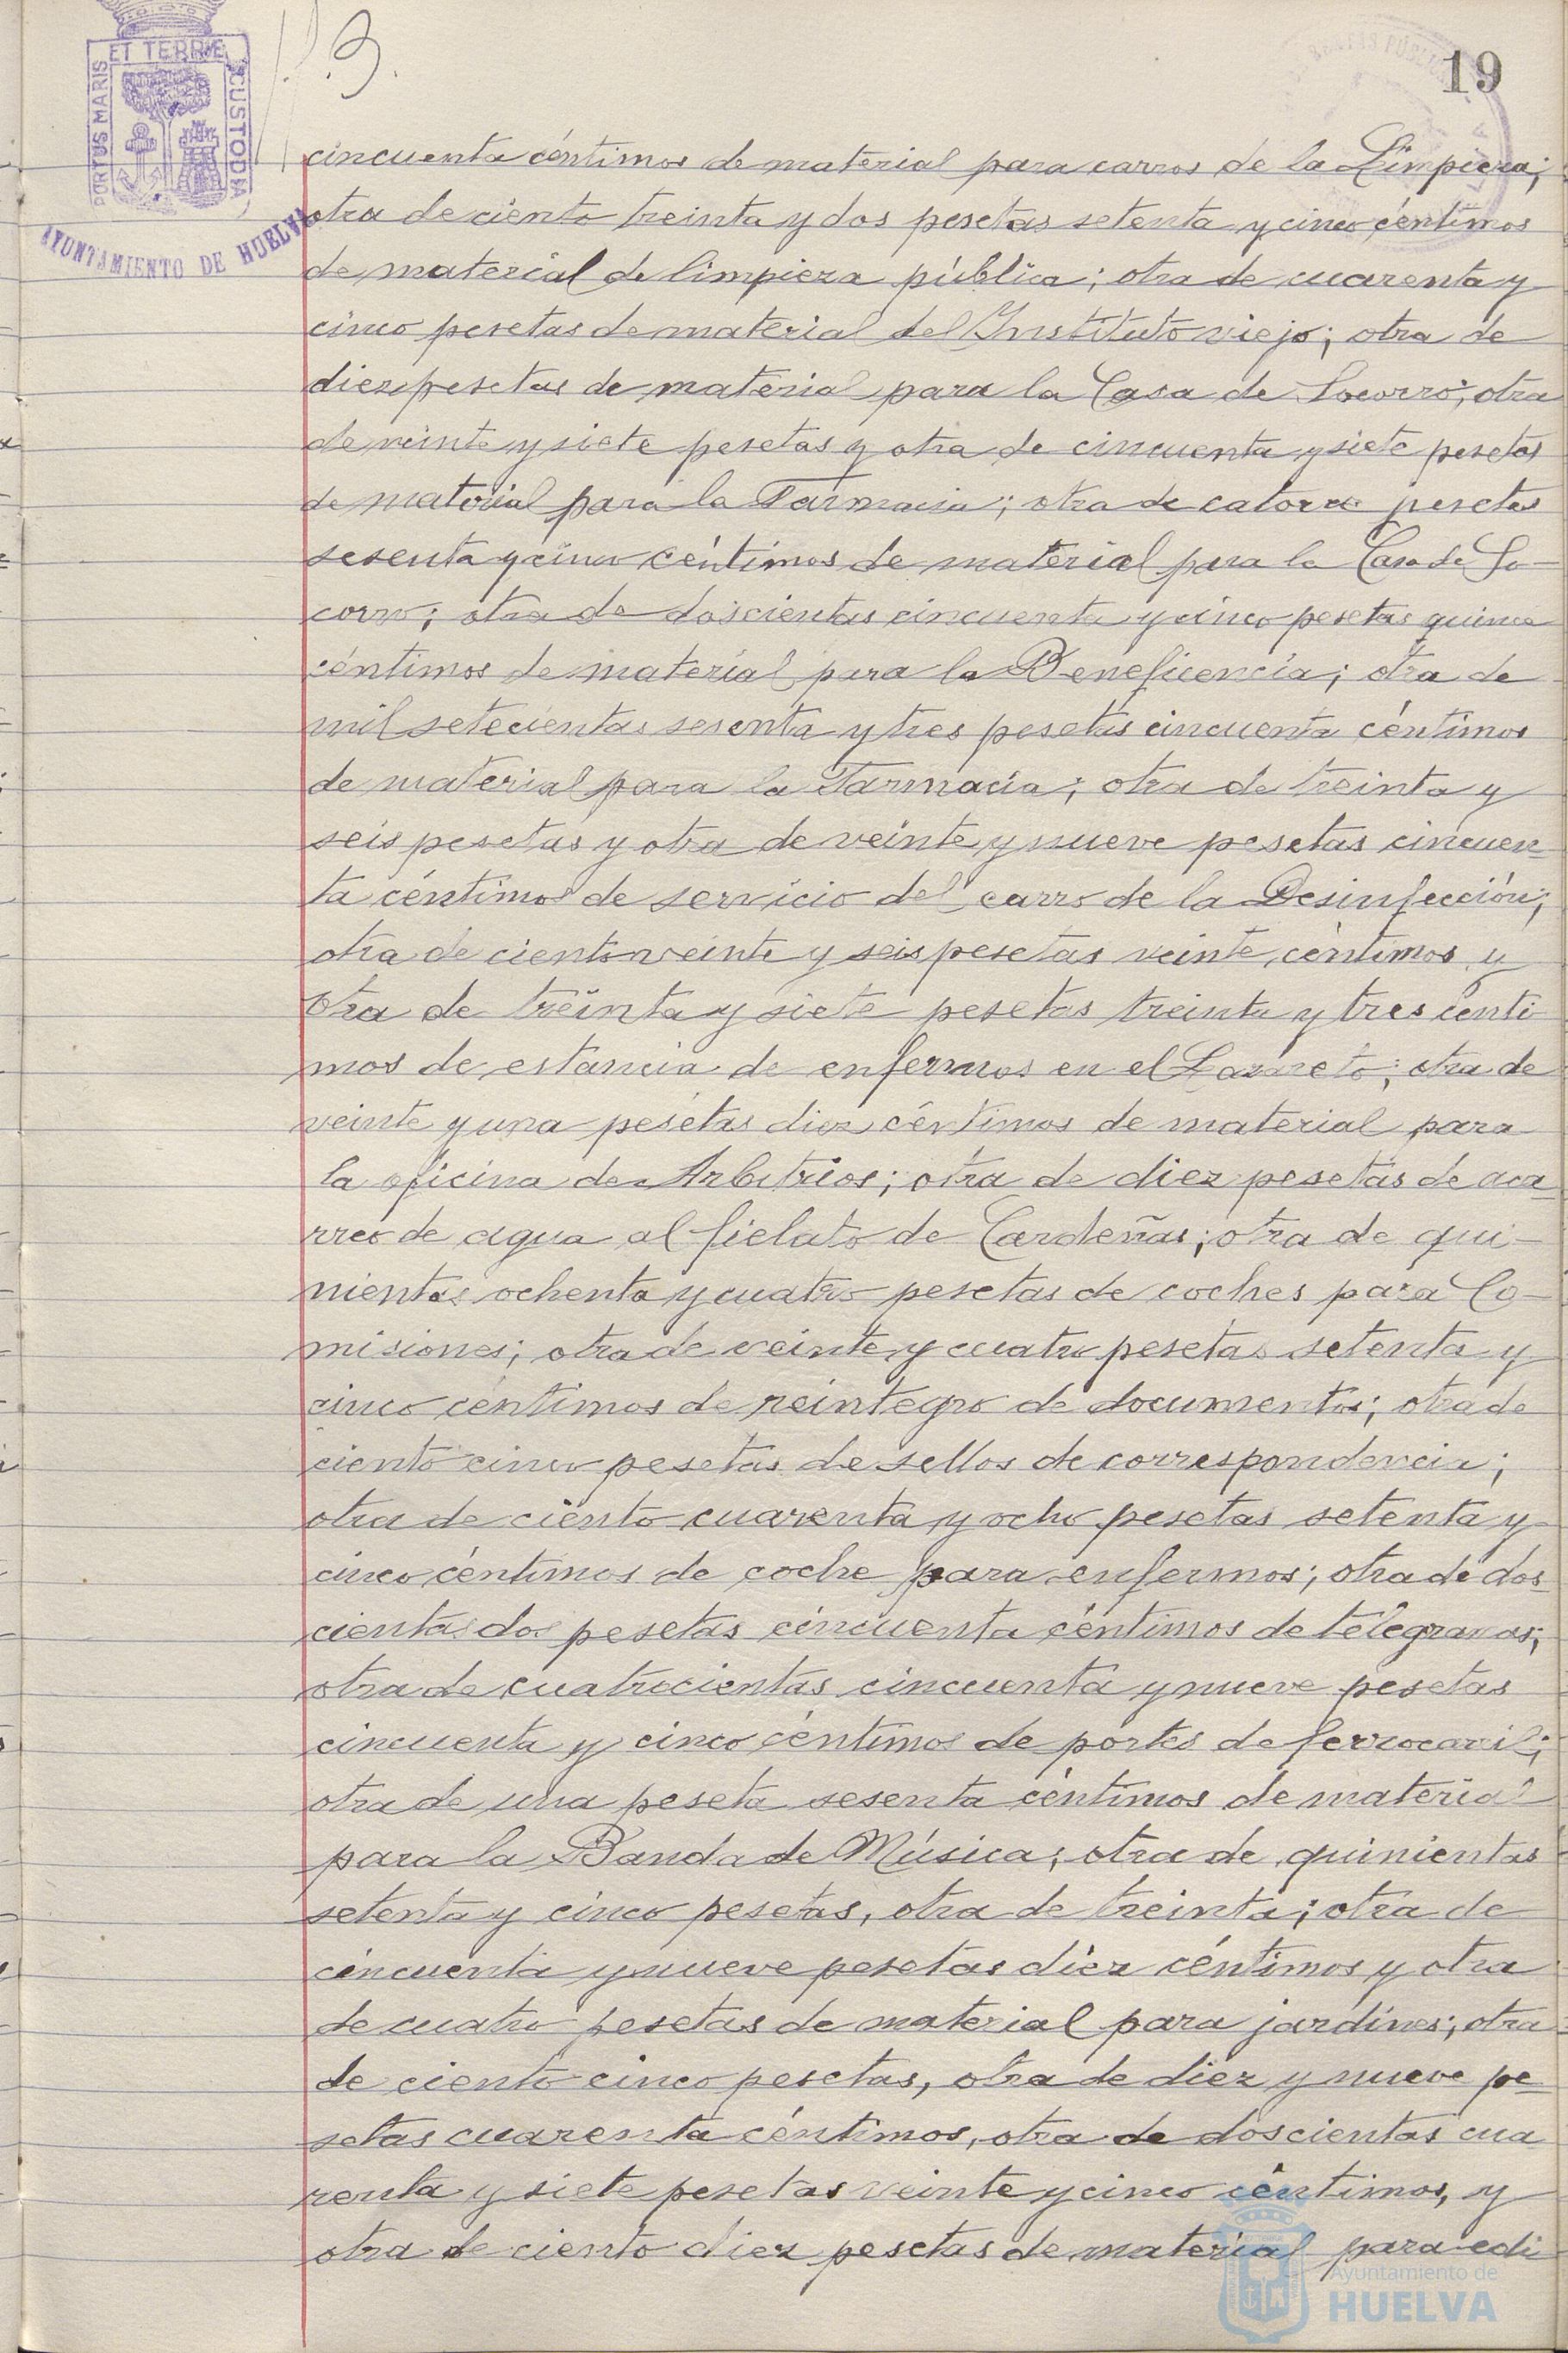 19
ET TERRE
PORTUS MARIS
CUSTODIA
AYUNTAMIENTO DE HUELVA
cincuenta céntimos de material para carros de la Limpieza;
otra de ciento treinta y dos pesetas setenta y cinco céntimos
de material de limpieza pública; otra de cuarenta y
cinco pesetas de material del Instituto viejo; otra de
diez pesetas de material para la Casa de Socorro; otra
de veinte y siete pesetas y otra de cincuenta y siete pesetas
de material para la Farmacia; otra de catorce pesetas
sesenta y cinco céntimos de material para la Casa de So-
corro; otra de doscientas cincuenta y cinco pesetas quince
céntimos de material para la Beneficencia; otra de
mil setecientas sesenta y tres pesetas cincuenta céntimos
de material para la Farmacia; otra de treinta y
seis pesetas y otra de veinte y nueve pesetas cincuen-
ta céntimos de servicio del carro de la Desinfección;
otra de ciento veinte y seis pesetas veinte céntimos y
otra de treinta y siete pesetas treinta y tres cénti
mos de estancia de enfermos en el Lazareto; otra de
veinte y una pesetas diez céntimos de material para
la oficina de Arbitrios; otra de diez pesetas de aca-
rreo de agua al fielato de Cardeñas; otra de qui-
nientas ochenta y cuatro pesetas de coches para Co-
misiones; otra de veinte y cuatro pesetas setenta y
cinco céntimos de reintegro de documentos; otra de
ciento cinco pesetas de sellos de correspondencia;
otra de ciento cuarenta y ocho pesetas setenta y
cinco céntimos de coche para enfermos; otra de dos-
cientas dos pesetas cincuenta céntimos de telegramas;
otra de cuatrocientas cincuenta y nueve pesetas
cincuenta y cinco céntimos de portes de ferrocarril;
otra de una peseta sesenta céntimos de material
para la Banda de Música; otra de quinientas
setenta y cinco pesetas, otra de treinta; otra de
cincuenta y nueve pesetas diez céntimos y otra
de cuatro pesetas de material para jardines; otra
de ciento cinco pesetas, otra de diez y nueve pe-
setas cuarenta céntimos, otra de doscientas cua
renta y siete pesetas veinte y cinco céntimos, y
otra de ciento diez pesetas de material para edi
Ayuntamiento de
HUELVA